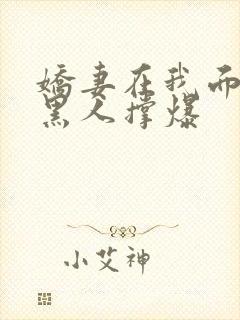 娇妻在我面
黑人撑爆
小艾神